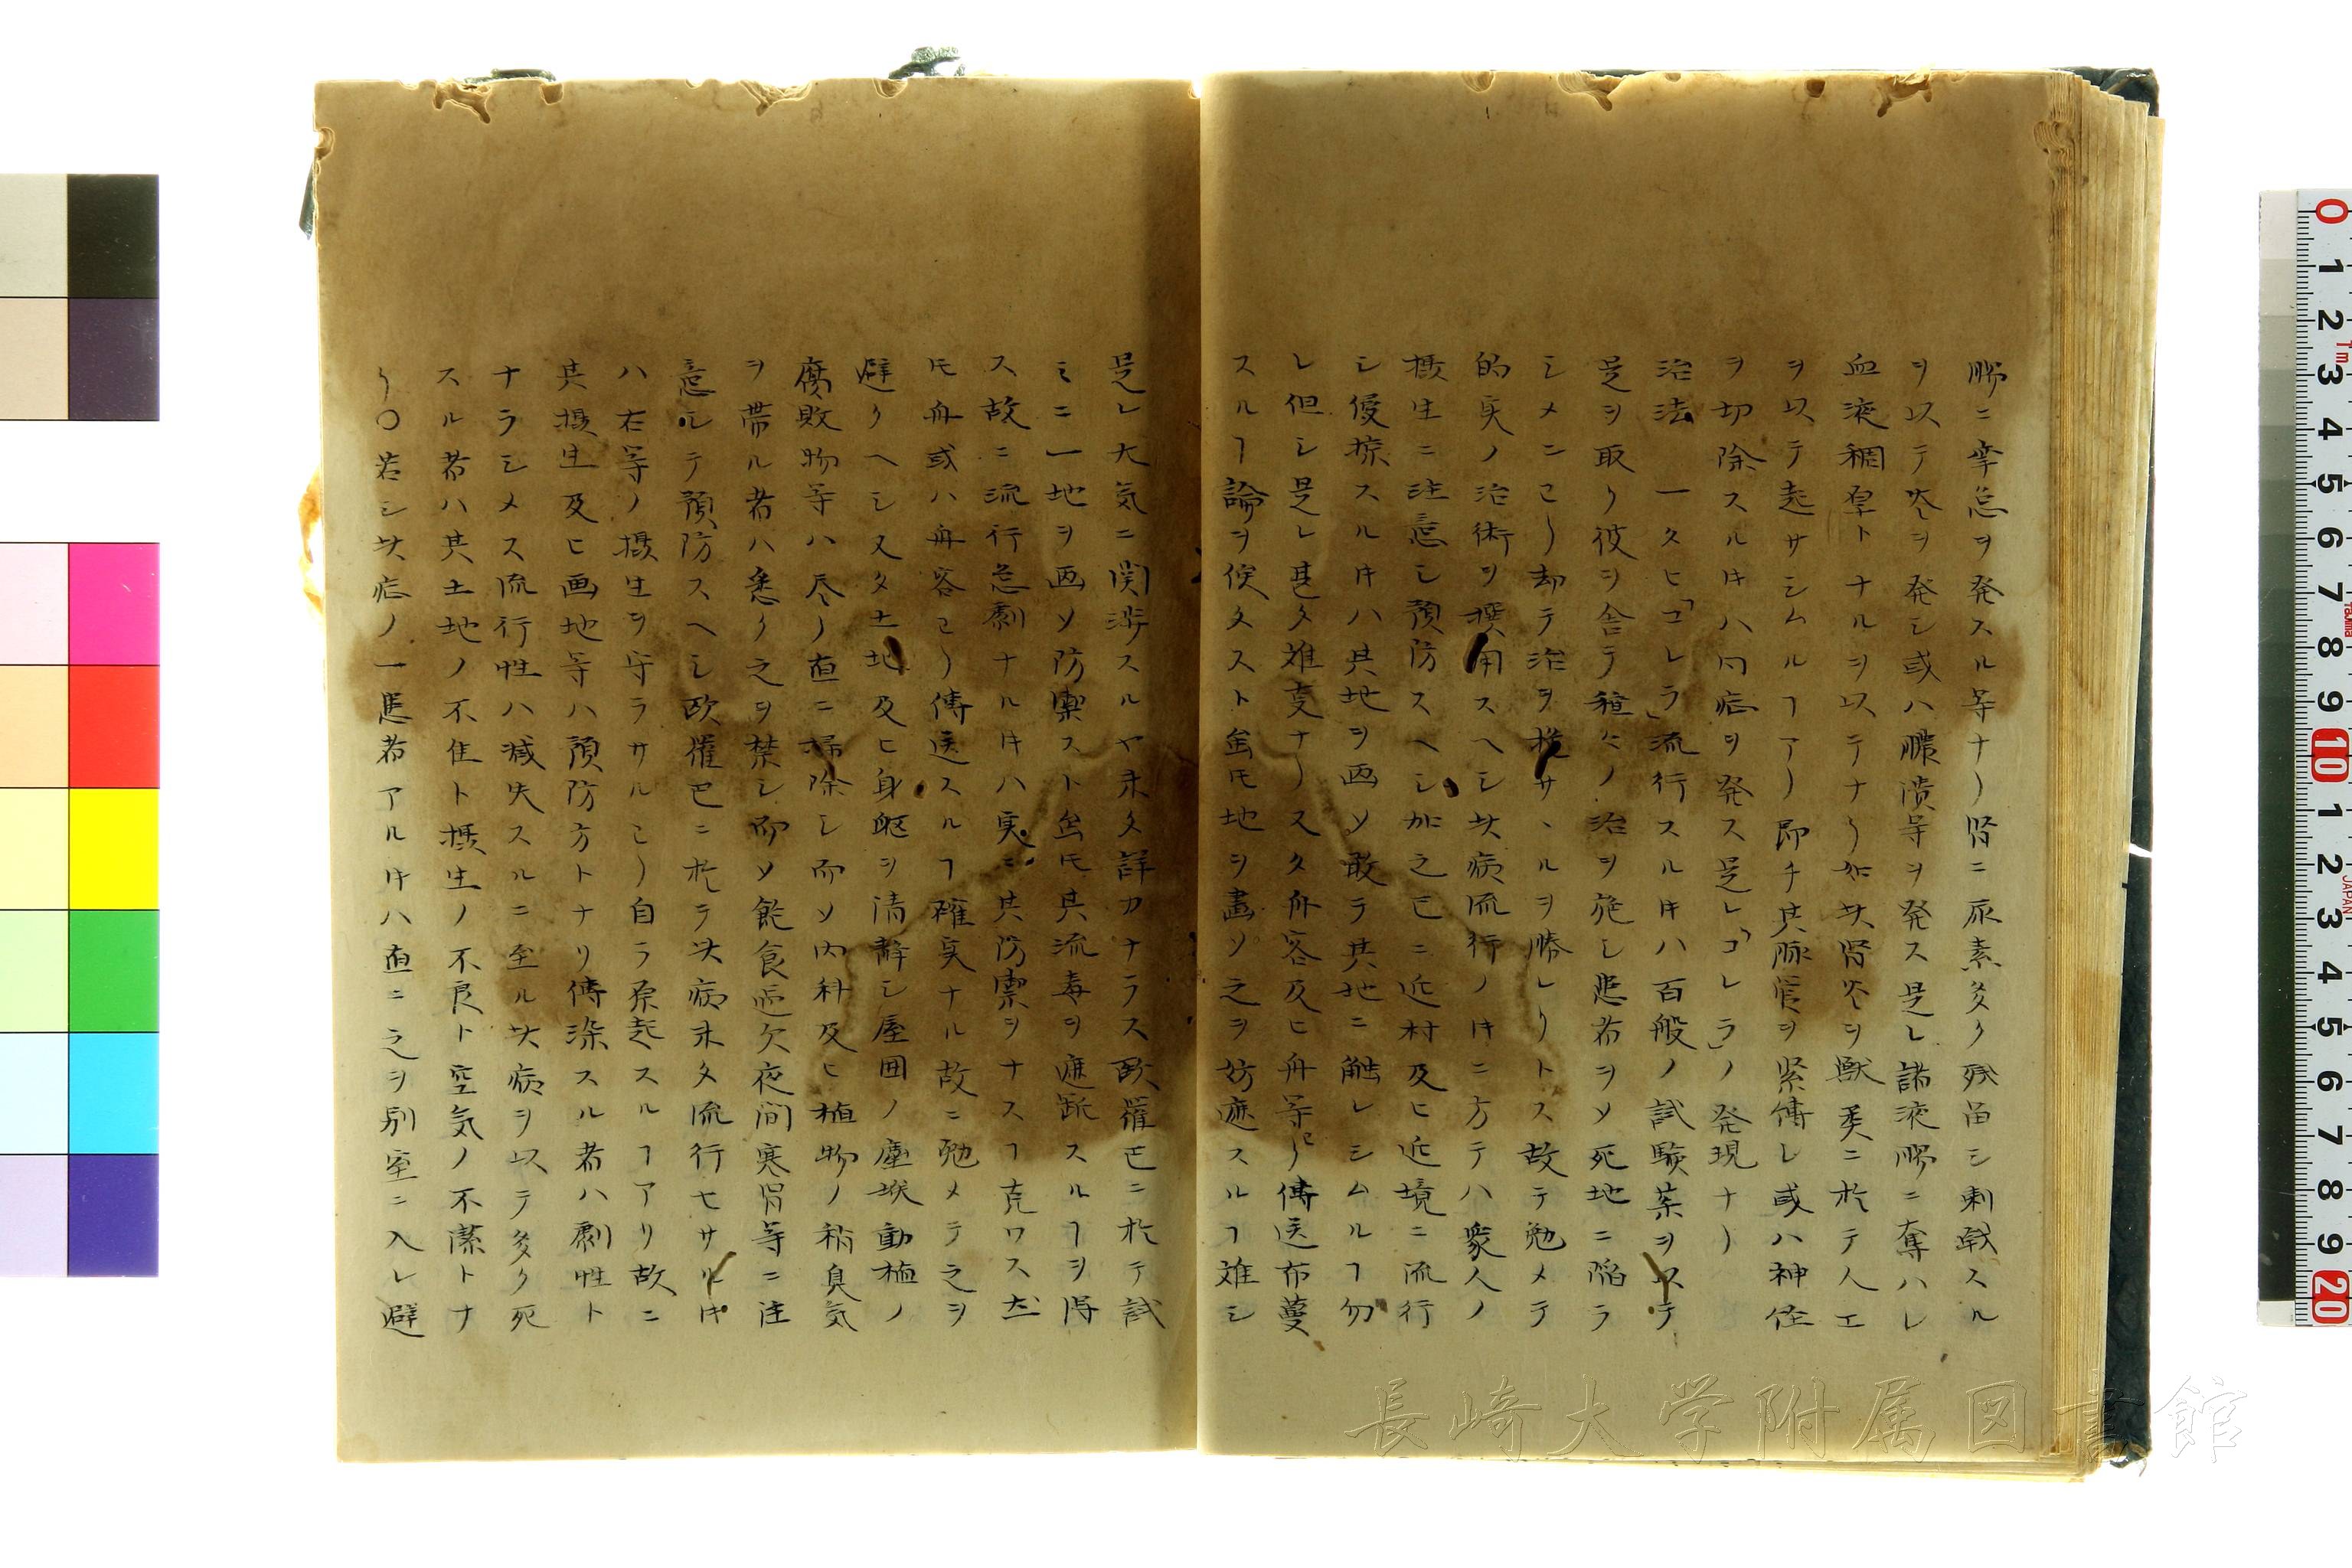 膓ニ挛急ヲ発スル等ナリ腎ニ尿素多ク残畄シ刺戟スル
ヲ以テ炎ヲ発シ或ハ膿潰等ヲ発ス是レ諸液膓ニ奪ハレ
血液稠厚トナルヲ以テナリ如此腎炎ヲ獣类ニ於テ人工
ヲ以テ起サシムルヿアリ即チ其脉管ヲ緊縛レ或ハ神経
ヲ切除スルキハ同症ヲ発ス是レ「コレラ」ノ発現ナリ
治法 一タヒ「コレラ」流行スルキハ百般ノ試験薬ヲ以テ
是ヲ取リ彼ヲ舎テ種々ノ治ヲ施シ患者ヲソ死地ニ陥ラ
シメニヨリ却テ治ヲ施サヽルヲ勝レリトス故テ勉メテ
的実ノ治術ヲ撰用スヘシ此病流行ノキニ方テハ衆人ノ
摂生ニ注意シ預防スヘシ加之已ニ近村及ヒ近境ニ流行
シ侵掠スルキハ其地ヲ画ソ敢テ其地ニ触レシムルヿ勿
レ但シ是レ甚タ难支ナリ又タ舟客及ヒ舟等ヨリ傳送布蔓
スルヿ論ヲ俟タスト雖𪜈地ヲ畫ソ之ヲ妨遮スルヿ难シ
是レ大気ニ関渉スルヤ未タ詳カナラス欧羅巴ニ於テ試
ミニ一地ヲ画ソ防禦スト雖𪜈其流毒ヲ遮断スルヿヲ得
ス故ニ流行急劇ナルキハ実ニ其防禦ヲナスヿ克ワス然
𪜈舟或ハ舟客ヨリ傳送スルヿ確実ナル故ニ勉メテ之ヲ
避クヘシ又タ土地及ヒ身軀ヲ清静シ屋囲ノ塵埃動植ノ
腐敗物等ハ尽ク直ニ掃除シ而ソ肉科及ヒ植物ノ稍臭気
ヲ帯ル者ハ悉ク之ヲ禁シ而ソ飽食過欠夜間寒冒等ニ注
意ルテ預防スヘシ欧羅巴ニ於テ此病未タ流行セサルキ
ハ右等ノ摂生ヲ守ラサルヨリ自ラ原起スルヿアリ故ニ
其摂生及ヒ画地等ハ預防方トナリ傳染スル者ハ劇性ト
ナラシメス流行性ハ減失スルニ至ル此病ヲ以テ多ク死
スル者ハ其土地ノ不佳ト摂生ノ不良ト空気ノ不潔トナ
リ〇若シ此症ノ一患者アルキハ直ニ之ヲ別室ニ入レ避
長崎大学附属図書館